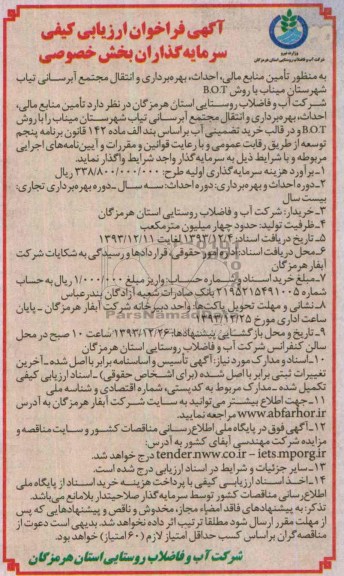 وزارت نیرو
شرکت آب و فاضلاب روستایی استان هرمزگان
آگهی فراخوان ارزیابی کیفی
سرمایه‌گذاران بخش خصوصی
به منظور تأمین منابع مالی، احداث، بهره‌برداری و انتقال مجتمع آبرسانی تیاب
شهرستان میناب با روش B.O.T
شرکت آب و فاضلاب روستایی استان هرمزگان در نظر دارد تأمین منابع مالی،
احداث، بهره‌برداری و انتقال مجتمع آبرسانی تیاب شهرستان میناب را با روش
B.O.T و در قالب خرید تضمینی آب براساس بند الف ماده ۱۴۲ قانون برنامه پنجم
توسعه از طریق رقابت عمومی و با رعایت قوانین و مقررات و آیین‌نامه‌های اجرایی
مربوطه و با شرایط ذیل به سرمایه‌گذار واجد شرایط واگذار نماید.
۱- برآورد هزینه سرمایه‌گذاری اولیه طرح: ۳۳۸/۸۰۰/۰۰۰/۰۰۰ ریال
۲- دوره احداث و بهره‌برداری: دوره احداث: سه سال - دوره بهره‌برداری تجاری:
بیست سال
۳- خریدار: شرکت آب و فاضلاب روستایی استان هرمزگان
۴- ظرفیت تولید: حدود چهار میلیون مترمکعب
۵- تاریخ دریافت اسناد: ۱۳۹۳/۱۲/۴ لغایت ۱۳۹۳/۱۲/۱۱
۶- محل دریافت اسناد: دفتر امور حقوقی، قراردادها و رسیدگی به شکایات شرکت
آبفار هرمزگان
۷- مبلغ خرید اسناد و شماره حساب: واریز مبلغ ۱/۰۰۰/۰۰۰ ریال به حساب
شماره ۲۱۹۵۲۱۵۴۹۱۰۰۵ بانک صادرات شعبه آزادگان بندرعباس
۸- نشانی و مهلت تحویل پاکت‌ها: واحد دبیرخانه شرکت آبفار هرمزگان - پایان
ساعت اداری مورخ ۱۳۹۳/۱۲/۲۵
۹- تاریخ و محل بازگشایی پیشنهادها: ۱۳۹۳/۱۲/۲۶ ساعت ۱۰ صبح در محل
سالن کنفرانس شرکت آب و فاضلاب روستایی استان هرمزگان
۱۰- اسناد و مدارک مورد نیاز: آگهی تأسیس و اساسنامه برابر با اصل شده - آخرین
تغییرات ثبتی برابر با اصل شده (برای اشخاص حقوقی) - اسناد ارزیابی کیفی
تکمیل شده - مدارک مربوط به کدپستی، شماره اقتصادی و شناسه ملی
۱۱- جهت اطلاع بیشتر می‌توانید به سایت شرکت آبفار هرمزگان به آدرس
www.abfarhor.ir مراجعه نمایید.
۱۲- آگهی فوق در پایگاه ملی اطلاع‌رسانی مناقصات کشور و سایت مناقصه و
مزایده شرکت مهندسی آبفای کشور به آدرس:
tender.nww.co.ir – iets.mporg.ir درج خواهد شد.
۱۳- سایر جزئیات و شرایط در اسناد ارزیابی درج شده است.
۱۴- اخذ اسناد ارزیابی کیفی با پرداخت هزینه خرید اسناد از پایگاه ملی
اطلاع‌رسانی مناقصات کشور توسط سرمایه‌گذار صلاحیتدار بلامانع می‌باشد.
تذکر: به پیشنهادهای فاقد امضاء مجاز، مخدوش و ناقص و پیشنهادهایی که پس
از مهلت مقرر ارسال شود مطلقا ترتیب اثر داده نخواهد شد. بدیهی است دعوت از
مناقصه‌گران براساس کسب حداقل امتیاز لازم (۶۰ امتیاز) خواهد بود.
شرکت آب و فاضلاب روستایی استان هرمزگان